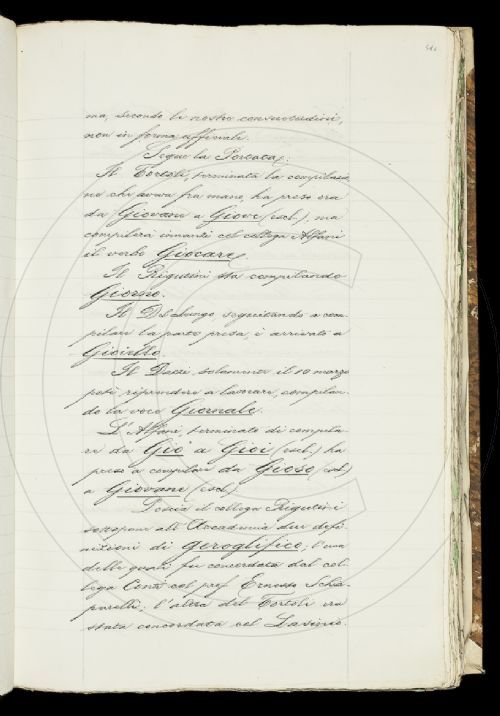 ma, secondo le nostre consuetudini,
non in forma ufficiale.
Segue la Portata:
Il Tortoli, terminata la compilazio
ne che aveva fra mano, ha preso ora
da Giovane a Giove (escl.), ma
compilerà innanzi col collega Alfani
il verbo Giocare.
Il Rigutini sta compilando
Giorno.
Il Dellungo seguitando a com
pilare la parte presa, è arrivato a
Gioiello.
Il Dazzi, solamente il 10 marzo
potè riprendere a lavorare, compilan
do la voce Giornale.
L'Alfani, terminato di compila
re da Giò a Gioi (escl.) ha
preso a compilare da Gioso (escl.)
a Giovane (escl.)
il collega Rigutini
sottopone all'Accademia due defi
nizioni di geroglifico, l'una
delle quali fu concordata dal col
lega Conti col prof. Ernesto Schia
parelli; l'altra del Tortoli era
stata concordata col Lasinio.